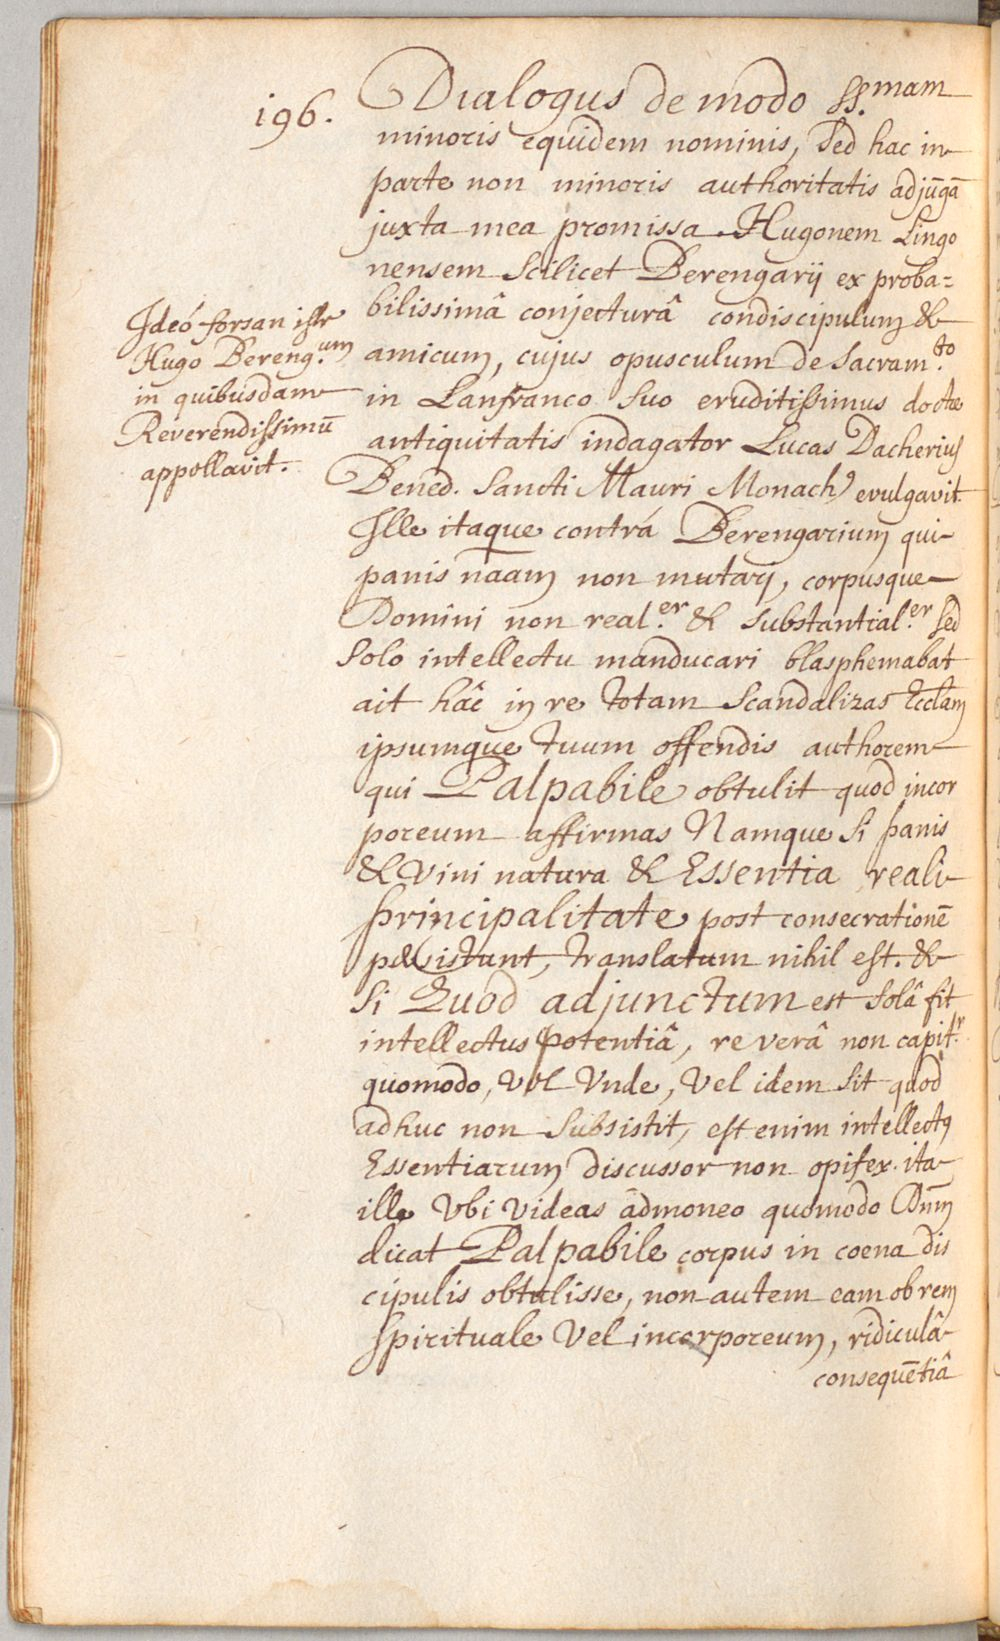 196.
Dialogus de modo SS.mam
minoris equidem nominis, sed hac in
parte non minoris authoritatis adjūgā
juxta mea promissa Hugonem Lingo
nensem scilicet Berengarij ex proba=
bilissimâ conjecturâ condiscipulum &
amicum, cujus opusculum de Sacram.to
in Lanfranco suo eruditissimus doctae
antiquitatis indagator Lucas Dacherius
Bened. Sancti Mauri Monach9 evulgavit
Ille itaque contrá Berengarium qui
panis naam non mutari, corpusque
Domini non real.er & substantial.er sed
solo intellectu manducari blasphemabat
ait hâc in re totam scandalizas Ecclam
ipsumque tuum offendis authorem
qui Palpabile obtulit quod incor
poreum affirmas Namque si panis
& vini natura & Essentia reali
principalitate post consecrationē
persistunt, translatum nihil est. &
si Quod adjunctum est solâ fit
intellectus potentiâ, re verâ non capit.r
quomodo, vel Vnde, vel idem sit quod
adhuc non subsistit, est enim intellect9
Essentiarum discussor non opifex. ita
ille Vbi videas admoneo quomodo Dnm
dicat Palpabile corpus in coena dis
cipulis obtulisse, non autem eam ob rem
spirituale vel incorporeum, ridiculâ
consequētiâ
Ideó forsan iste
Hugo Bereng.um
in quibusdam
Reverendissimū
appellavit.